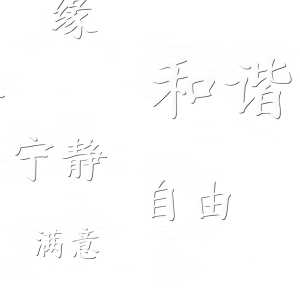 缘
和谐
宁静
自由
满意